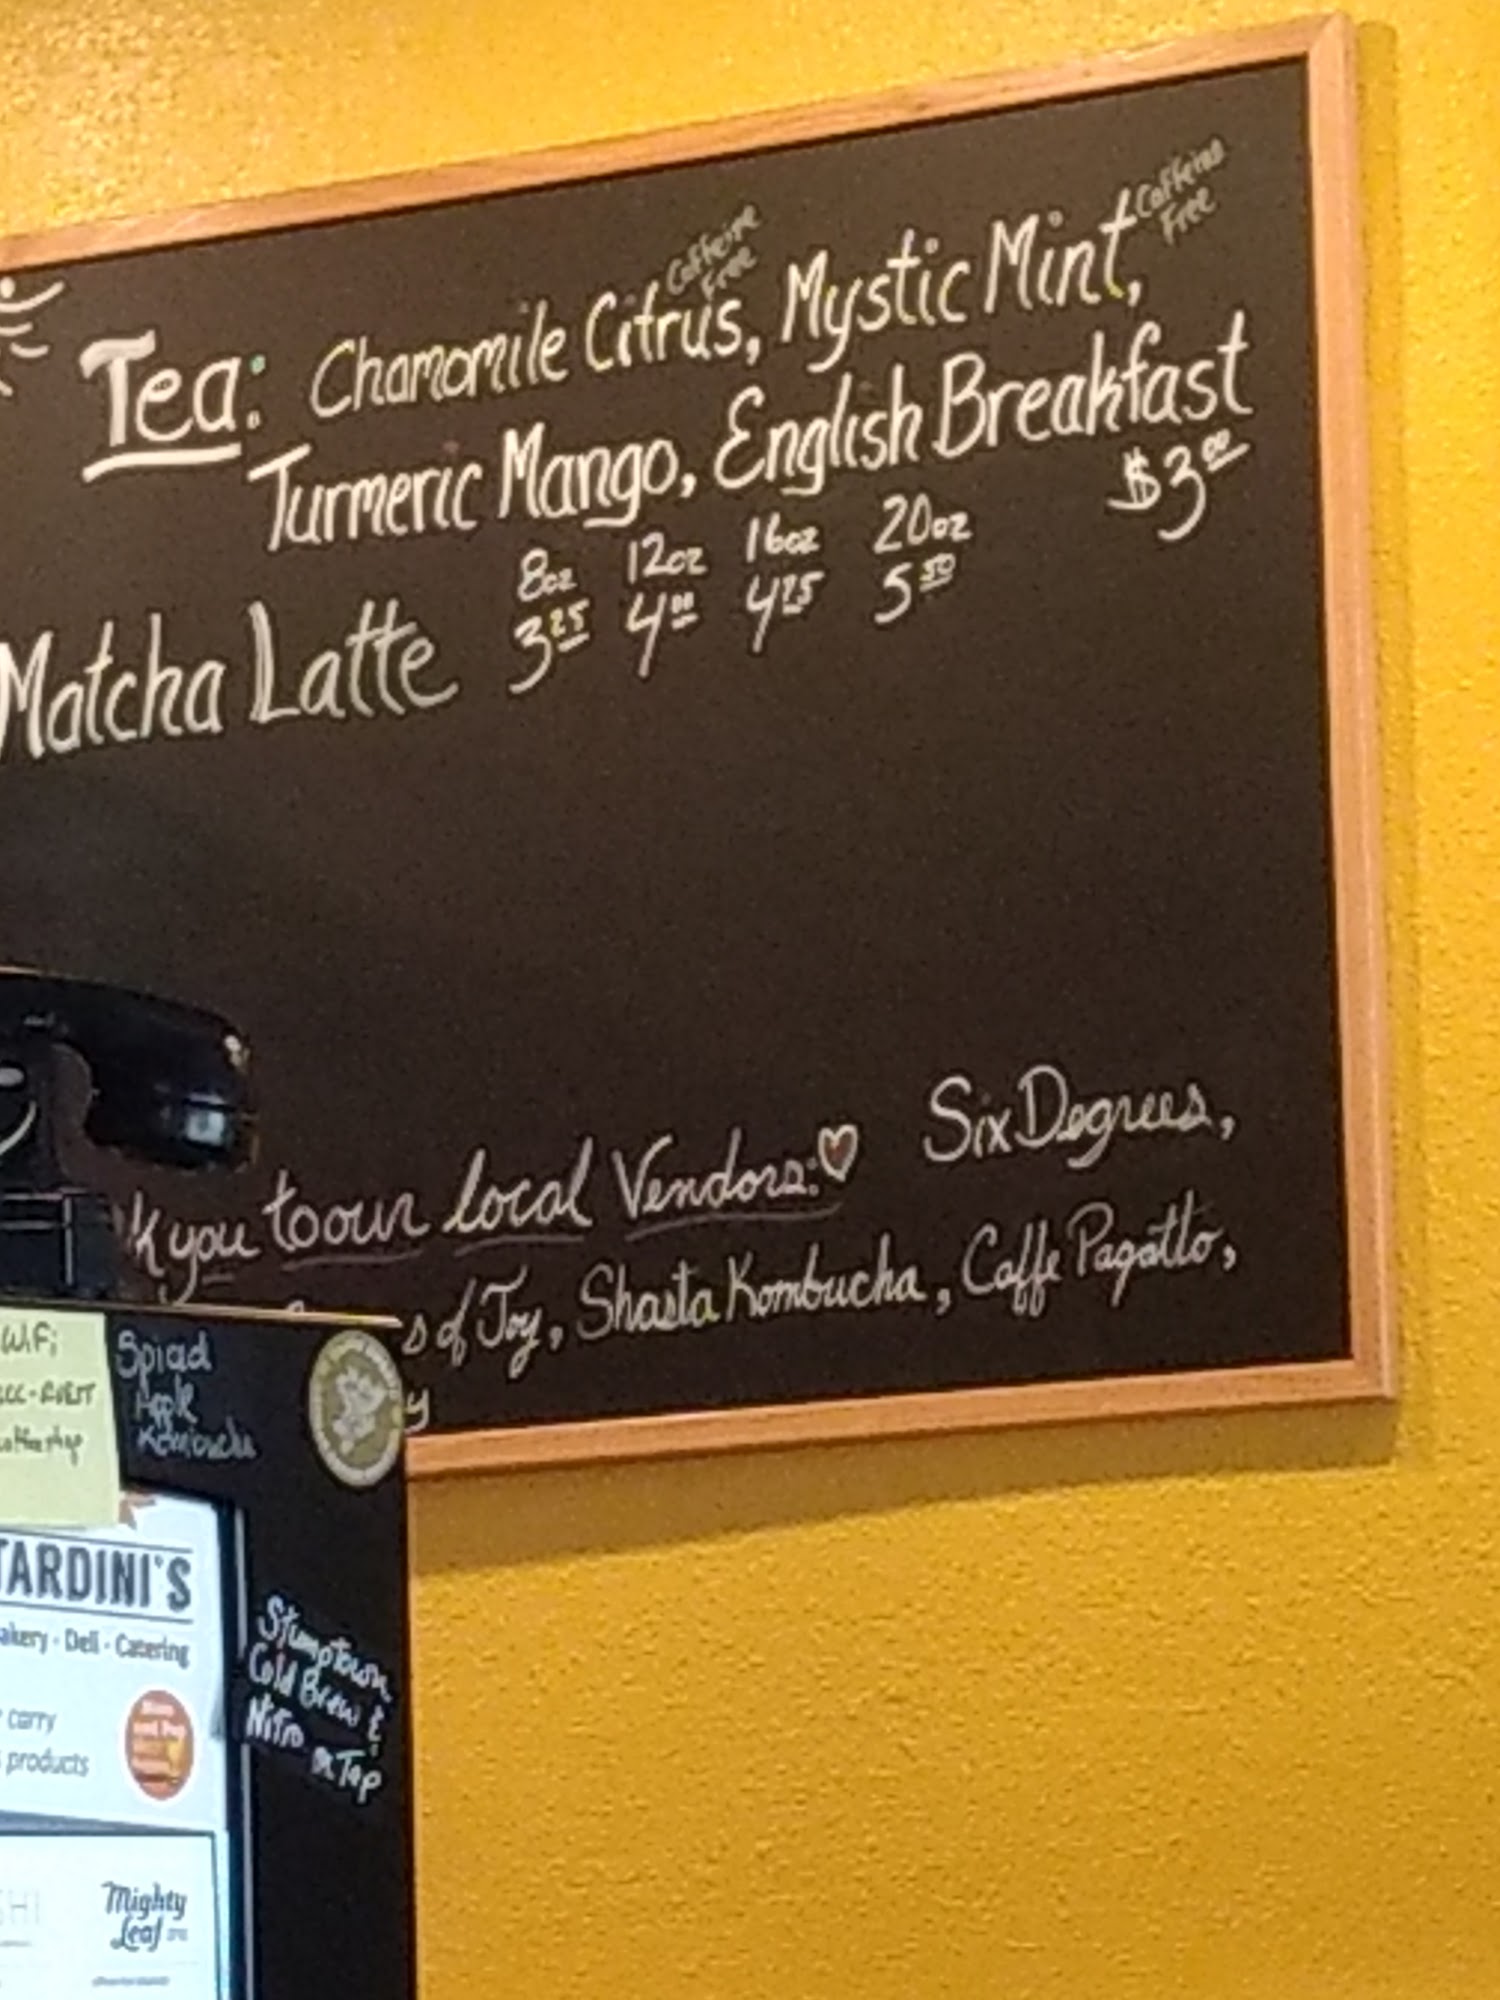 Caffeine Free
Caffeine Free
Tea: Chamomile Citrus, Mystic Mint,
Turmeric Mango, English Breakfast
$3.00
8oz 12oz 16oz 20oz
Matcha Latte 3.25 4.00 4.75 5.50
k you to our local Vendors: Six Degrees,
s of Joy, Shasta Kombucha, Caffe Pagatto,
y
WiFi
Spiced
Apple
Kombucha
TARDINI'S
akery · Deli · Catering
carry
products
Stumptown
Cold Brew &
Nitro on Tap
Mighty
Leaf